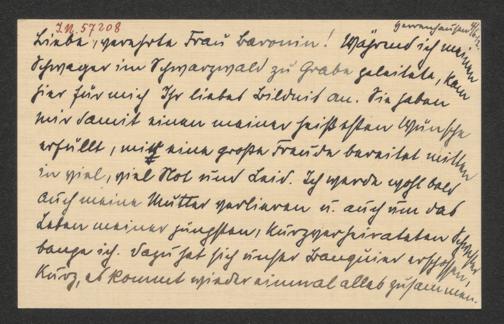 I.N. 57208
Herrenhausen
Liebe, verehrte Frau Baronin! Während ich meinen
Schwager im Schwarzwald zu Grabe geleitete, kam
hier für mich Ihr liebes Bildnis an. Sie haben
mir damit einen meiner heißesten Wünsche
erfüllt, mir eine große Freude bereitet mitten
in viel, viel Not und Leid. Ich werde wohl bald
auch meine Mutter verlieren u. auch um das
Leben meiner jüngsten, kurzverheirateten Schwester
bange ich. Dazu hat sich unser Banquier erschossen,
kurz, es kommt wieder einmal alles zusammen.